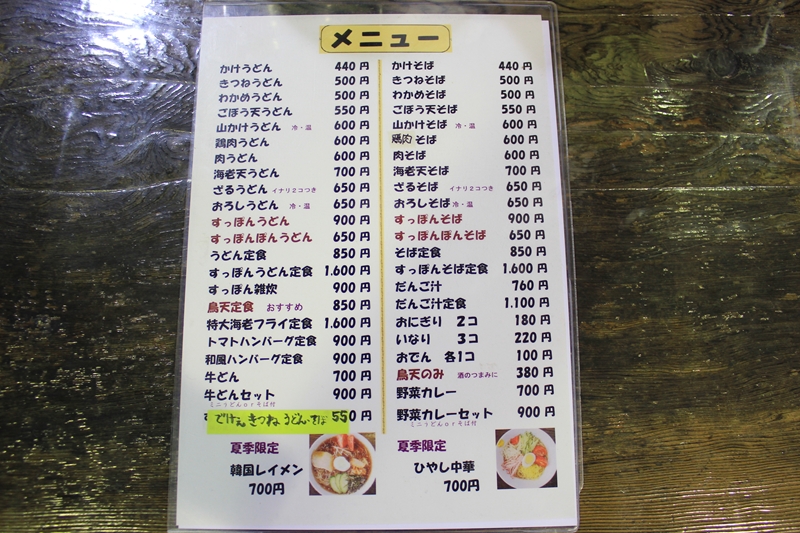 メニュー
かけうどん 440円
きつねうどん 500円
わかめうどん 500円
ごぼう天うどん 550円
山かけうどん 冷・温 600円
鶏肉うどん 600円
肉うどん 600円
海老天うどん 700円
ざるうどん イナリ2コつき 650円
おろしうどん 冷・温 650円
すっぽんうどん 900円
すっぽんぽんうどん 650円
うどん定食 850円
すっぽんうどん定食 1.600円
すっぽん雑炊 900円
鳥天定食 おすすめ 850円
特大海老フライ定食 1.600円
トマトハンバーグ定食 900円
和風ハンバーグ定食 900円
牛どん 700円
牛どんセット 900円
ミニうどんorそば付
でけぇ きつね うどん・そば 550円
夏季限定
韓国レイメン
700円
かけそば 440円
きつねそば 500円
わかめそば 500円
ごぼう天そば 550円
山かけそば 冷・温 600円
鶏肉そば 600円
肉そば 600円
海老天そば 700円
ざるそば イナリ2コつき 650円
おろしそば 冷・温 650円
すっぽんそば 900円
すっぽんぽんそば 650円
そば定食 850円
すっぽんそば定食 1.600円
だんご汁 760円
だんご汁定食 1.100円
おにぎり 2コ 180円
いなり 3コ 220円
おでん 各1コ 100円
鳥天のみ 酒のつまみに 380円
野菜カレー 700円
野菜カレーセット 900円
ミニうどんorそば付
夏季限定
ひやし中華
700円